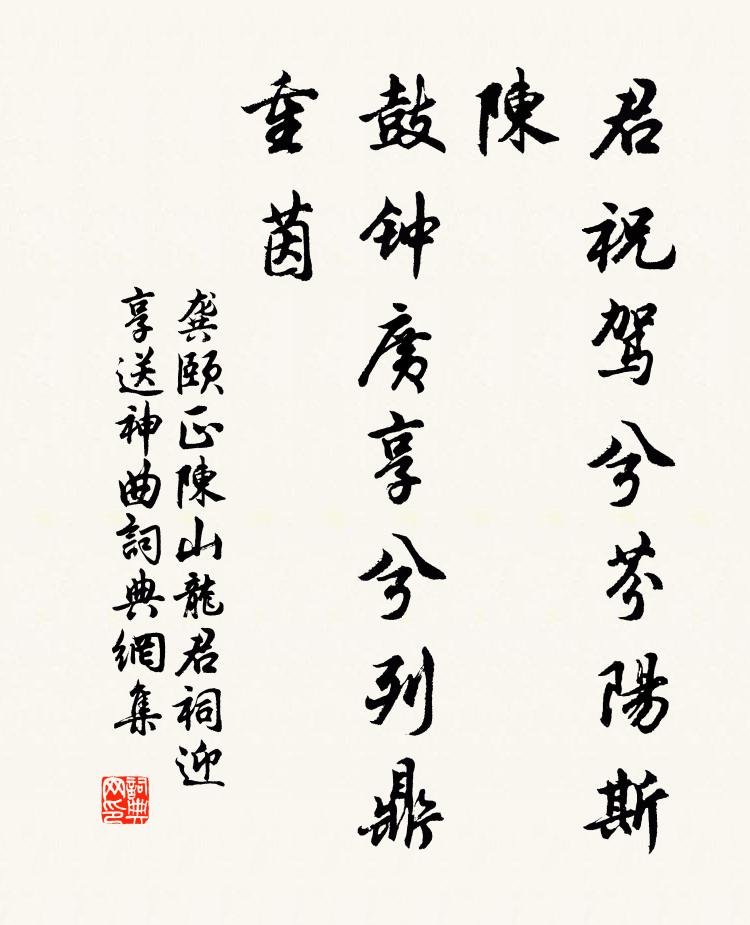 君祝驾兮芬陽斯
陳
鼓钟廣享兮列鼎
重茵
龚颐正陳山龍君祠迎
享送神曲詞典網集
詞典
网印